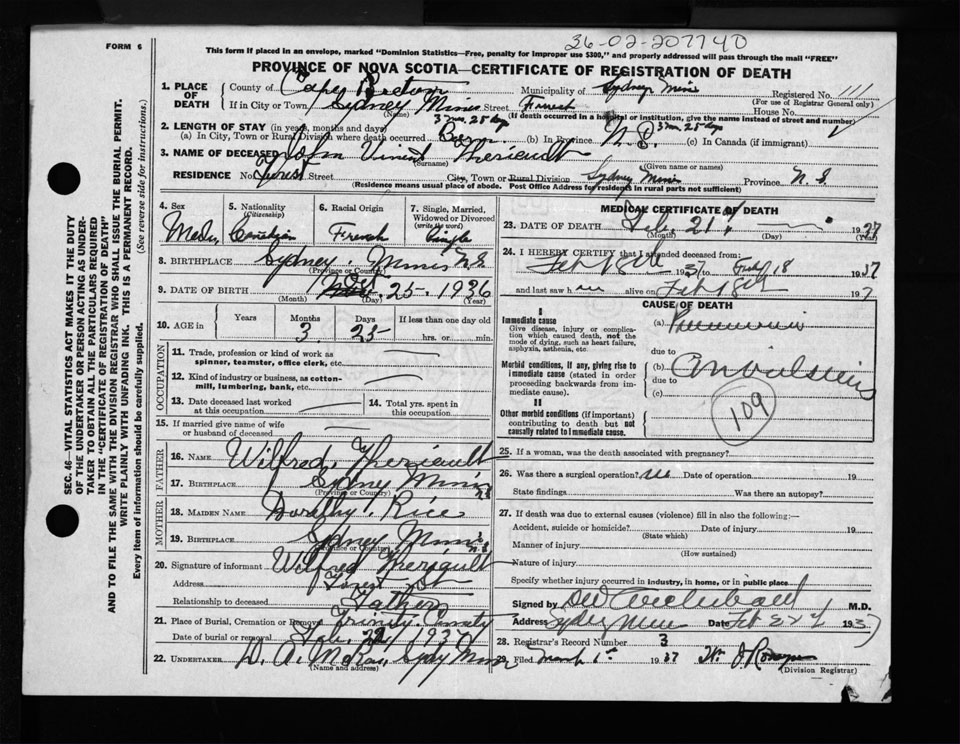 36-02-207740
FORM 6
This form if placed in an envelope, marked "Dominion Statistics—Free, penalty for improper use $300," and properly addressed will pass through the mail "FREE"
PROVINCE OF NOVA SCOTIA—CERTIFICATE OF REGISTRATION OF DEATH
1. PLACE OF DEATH
County of Cape Breton Municipality of Sydney Mines Registered No. 111
(For use of Registrar General only)
If in City or Town Sydney Mines Street Forrest House No.
(Name) (If death occurred in a hospital or institution, give the name instead of street and number)
2. LENGTH OF STAY (in years, months and days) 3 mos. 25 days 3 mos. 25 days
(a) In City, Town or Rural Division where death occurred Born (b) In Province N.S. (c) In Canada (if immigrant)
3. NAME OF DECEASED John Vincent Theriault
(Surname) (Given name or names)
RESIDENCE No. Forest Street City, Town or Rural Division Sydney Mines Province N. S.
(Residence means usual place of abode. Post Office Address for residents in rural parts not sufficient)
4. Sex 5. Nationality (Citizenship) 6. Racial Origin 7. Single, Married, Widowed or Divorced (write the word)
Male Canadian French Single
8. BIRTHPLACE Sydney Mines N.S.
(Province or Country)
9. DATE OF BIRTH Oct 25 - 1936
(Month) (Day) (Year)
10. AGE in Years Months Days If less than one day old
3 25 hrs. or min.
OCCUPATION
11. Trade, profession or kind of work as spinner, teamster, office clerk, etc.
12. Kind of industry or business, as cotton-mill, lumbering, bank, etc.
13. Date deceased last worked at this occupation
14. Total yrs. spent in this occupation
15. If married give name of wife or husband of deceased
FATHER
16. NAME Wilfred Theriault
17. BIRTHPLACE Sydney Mines N.S.
(Province or Country)
MOTHER
18. MAIDEN NAME Dorathy Rice
19. BIRTHPLACE Sydney Mines N.S.
(Province or Country)
20. Signature of informant Wilfred Theriault
Address Forest St
Relationship to deceased Father
21. Place of Burial, Cremation or Removal Trinity
Date of burial or removal Feb. 22 1937
22. UNDERTAKER D. A. McRae, Sydney Mines
(Name and address)
MEDICAL CERTIFICATE OF DEATH
23. DATE OF DEATH Feb. 21 1937
(Month) (Day) (Year)
24. I HEREBY CERTIFY that I attended deceased from:
Feb 18th 1937 to Feb 18 1937
and last saw h im alive on Feb 18th 1937
CAUSE OF DEATH
I
Immediate cause
Give disease, injury or complication which caused death, not the mode of dying, such as heart failure, asphyxia, asthenia, etc.
(a) Pneumonia
due to
Morbid conditions, if any, giving rise to immediate cause (stated in order proceeding backwards from immediate cause).
(b) Convulsions
due to
(c)
109
II
Other morbid conditions (if important) contributing to death but not causally related to immediate cause.
25. If a woman, was the death associated with pregnancy?
26. Was there a surgical operation? No Date of operation 19
State findings Was there an autopsy?
27. If death was due to external causes (violence) fill in also the following:—
Accident, suicide or homicide? Date of injury 19
(State which)
Manner of injury
(How sustained)
Nature of injury
Specify whether injury occurred in industry, in home, or in public place
Signed by Archibald M.D.
Address Sydney Mines Date Feb 22 1937
28. Registrar's Record Number 3
29. Filed March 1st 1937
(Division Registrar)
SEC. 46—VITAL STATISTICS ACT MAKES IT THE DUTY
OF THE UNDERTAKER OR PERSON ACTING AS UNDER-
TAKER TO OBTAIN ALL THE PARTICULARS REQUIRED
IN THE "CERTIFICATE OF REGISTRATION OF DEATH"
AND TO FILE THE SAME WITH THE DIVISION REGISTRAR WHO SHALL ISSUE THE BURIAL PERMIT.
WRITE PLAINLY WITH UNFADING INK. THIS IS A PERMANENT RECORD.
Every item of information should be carefully supplied. (See reverse side for instructions.)